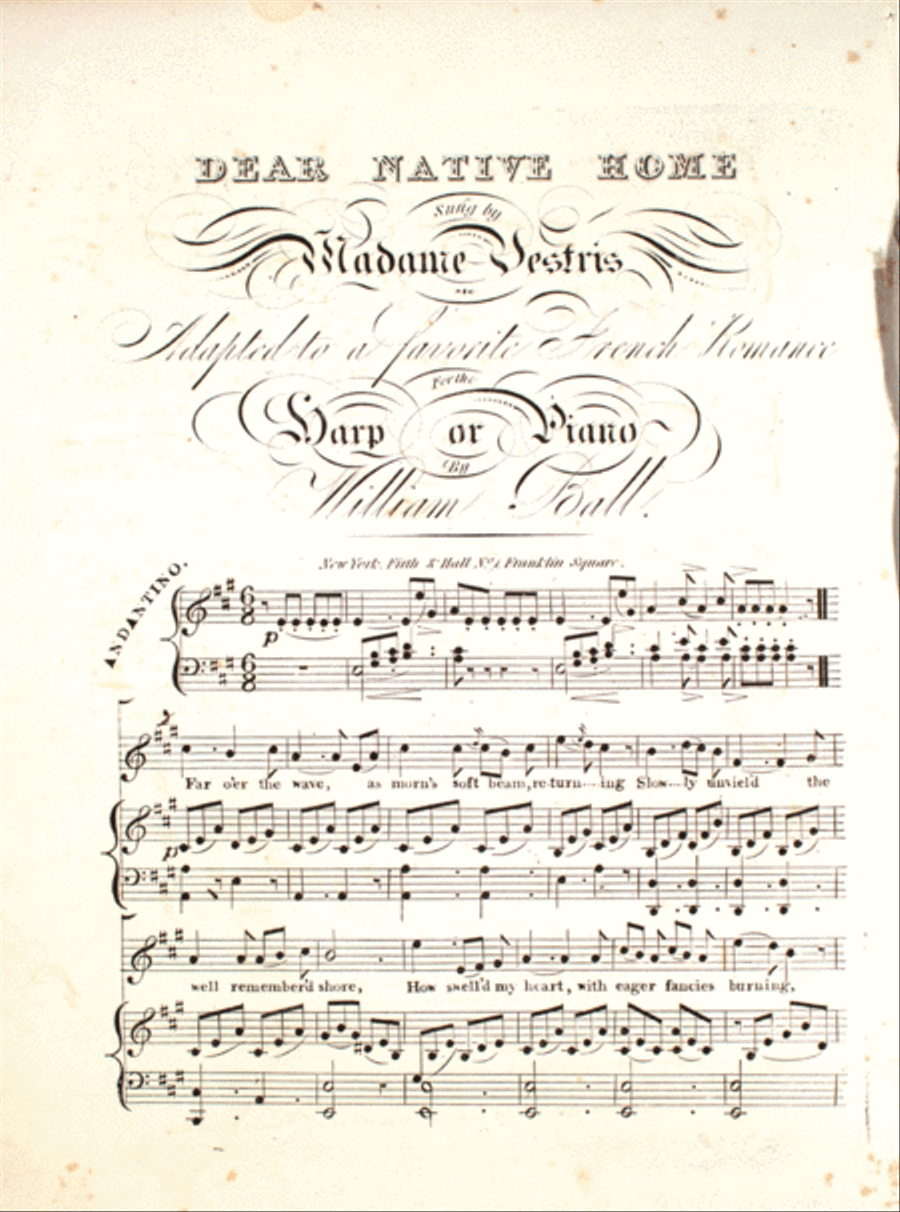 DEAR NATIVE HOME
Sung by
Madame Vestris
Adapted to a favorite French Romance
For the
Harp or Piano
By
William Ball.
New York, Firth & Hall, No. 1, Franklin Square.
ANDANTINO.
p
Far o'er the wave, as morn's soft beam, re-turn----ing Slow---ly unviel'd the
p
well remember'd shore, How swell'd my heart, with eager fancies burning,